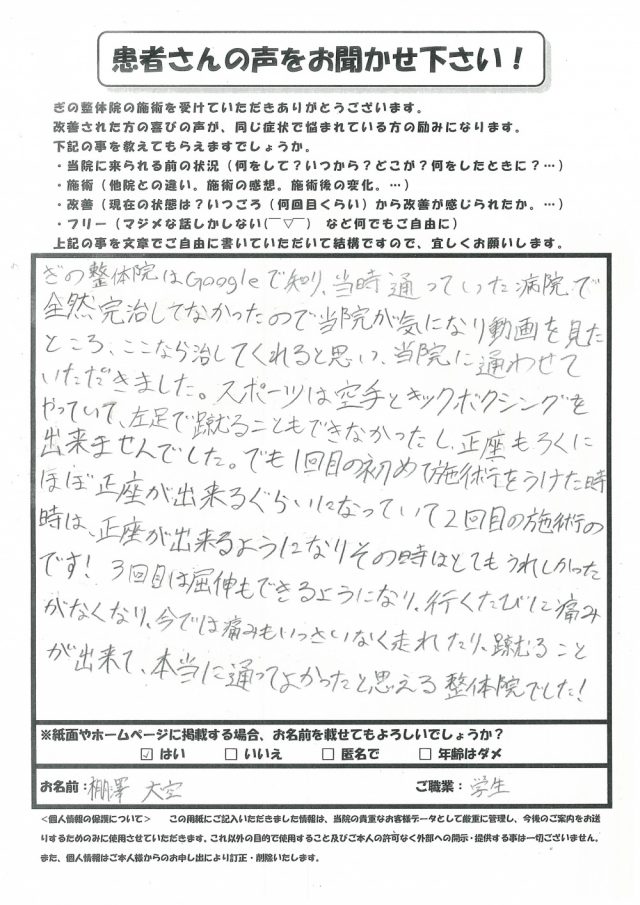 患者さんの声をお聞かせ下さい！
ぎの整体院の施術を受けていただきありがとうございます。
改善された方の喜びの声が、同じ症状で悩まれている方の励みになります。
下記の事を教えてもらえますでしょうか。
・当院に来られる前の状況（何をして？いつから？どこが？何をしたときに？…）
・施術（他院との違い。施術の感想。施術後の変化。…）
・改善（現在の状態は？いつごろ（何回目くらい）から改善が感じられたか。…）
・フリー（マジメな話しかしない(￣▽￣)　など何でもご自由に）
上記の事を文章でご自由に書いていただいて結構ですので、宜しくお願いします。
ぎの整体院はGoogleで知り、当時通っていた病院で
全然完治してなかったので当院が気になり動画を見た
ところ、ここなら治してくれると思い、当院に通わせて
いただきました。スポーツは空手とキックボクシングを
やっていて、左足で蹴むることもできなかったし、正座もろくに
出来ませんでした。でも1回目の初めて施術をうけた時
ほぼ正座が出来るぐらいになっていて2回目の施術の
時は、正座が出来るようになりその時はとてもうれしかった
です！3回目は屈伸もできるようになり、行くたびに痛み
がなくなり、今では痛みもいっさいなく走れたり、蹴むること
が出来て、本当に通ってよかったと思える整体院でした！
※紙面やホームページに掲載する場合、お名前を載せてもよろしいでしょうか？
☑ はい　□ いいえ　□ 匿名で　□ 年齢はダメ
お名前：棚澤 大空　ご職業：学生
＜個人情報の保護について＞　この用紙にご記入いただきました情報は、当院の貴重なお客様データとして厳重に管理し、今後のご案内をお送
りするためのみに使用させていただきます。これ以外の目的で使用すること及びご本人の許可なく外部への開示・提供する事は一切ございません。
また、個人情報はご本人様からのお申し出により訂正・削除いたします。